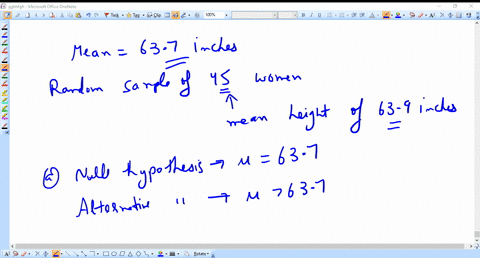 Mean = 63.7 inches
Random sample of 45 women
mean height of 63.9 inches
(a) Null hypothesis → μ = 63.7
Alternative " → μ > 63.7